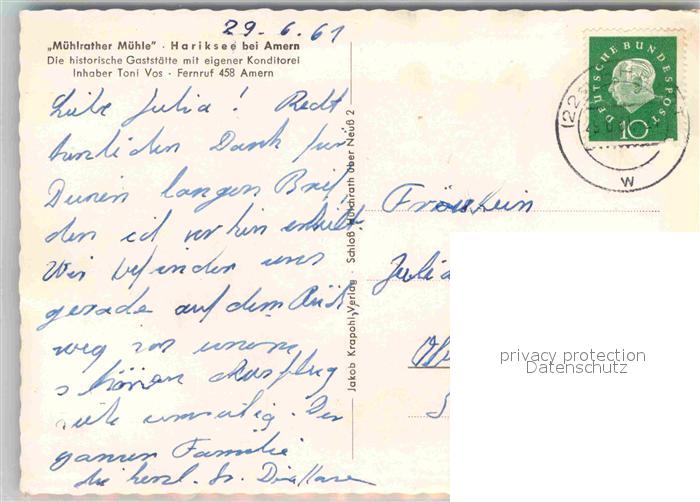 29. 6. 61
„Mühlrather Mühle“ · Hariksee bei Amern
Die historische Gaststätte mit eigener Konditorei
Inhaber Toni Vos · Fernruf 458 Amern
Liebe Julia! Recht
herzlichen Dank für
Deinen langen Brief
den ich vorhin erhielt.
Wir befinden uns
gerade auf dem Rück
weg von unserem
schönen Ausflug
Der
ganzen Familie
die herzl. Gr.
Jakob Krapohl-Verlag · Schloß Hülchrath über Neuß 2
DEUTSCHE BUNDESPOST
10
(22
w
Fräulein
Julia
privacy protection
Datenschutz